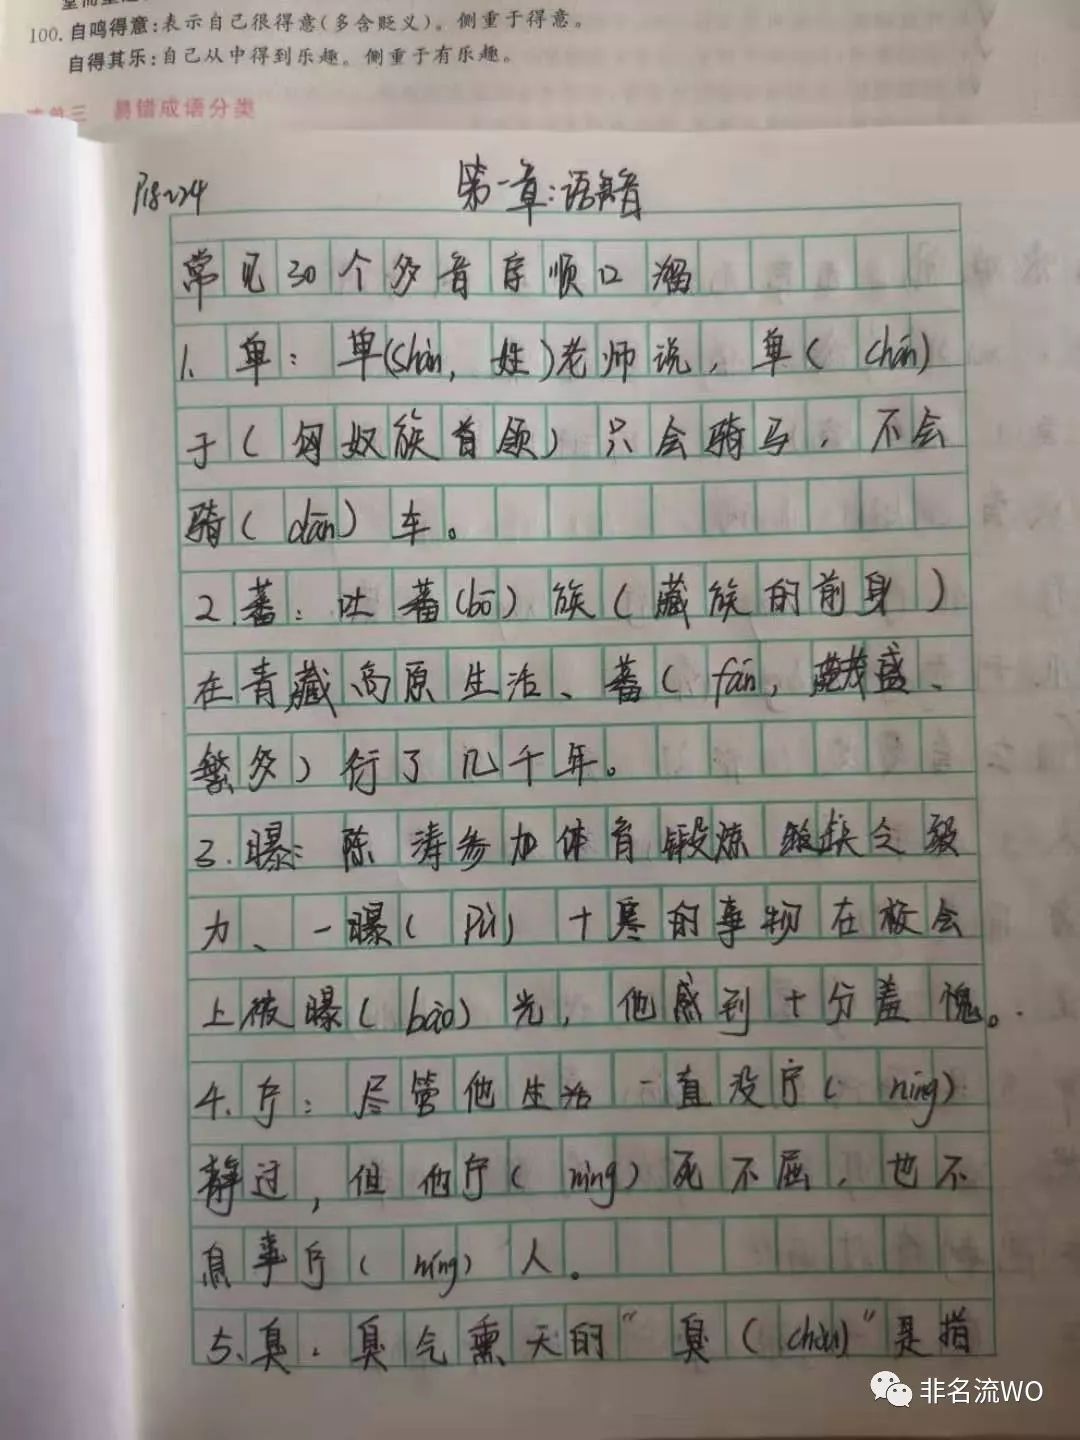 100. 自鸣得意:表示自己很得意(多含贬义)。侧重于得意。
自得其乐:自己从中得到乐趣。侧重于有乐趣。
易错成语分类
第一章:语音
常见30个多音字顺口溜
1. 单:单(shàn,姓)老师说,单(chán)
于(匈奴族首领)只会骑马,不会
骑(dān)车。
2.蕃:吐蕃(bō)族(藏族的前身)
在青藏高原生活、蕃(fán,茂盛、
繁多)衍了几千年。
3.曝:陈涛参加体育锻炼缺乏毅
力、一曝(pù)十寒的事物在校会
上被曝(bào)光,他感到十分羞愧。
4.宁:尽管他生活一直没宁(níng)
静过,但他宁(nìng)死不屈,也不
息事宁(níng)人。
5.臭:臭气熏天的“臭(chòu)”是指
非名流WO